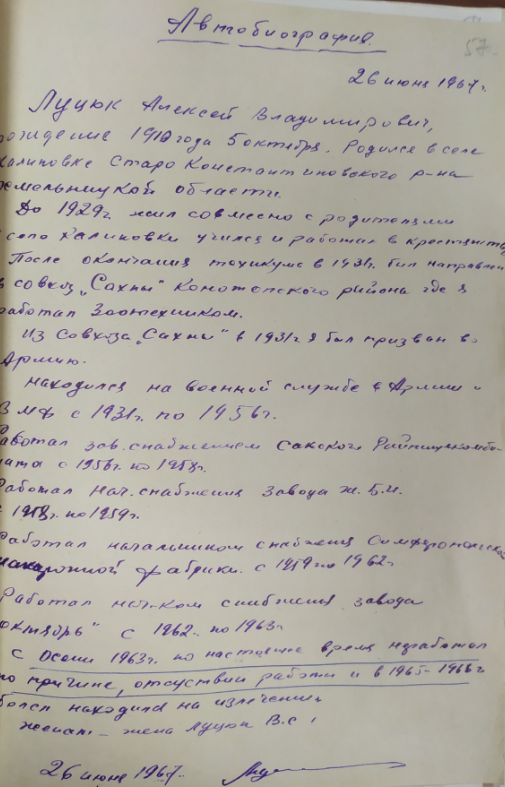 57
Автобиография.
26 июня 1967г.
Луцюк Алексей Владимирович,
рождение 1910 года 5 октября. Родился в селе
Халиповке Старо Константиновского р-на
мельницкой области.
До 1929г. жил совместно с родителями
село Халиповки учился и работал в
После окончания техникума в 1931г. был направлен
в совхоз "Сахны" Конотопского района где я
работал Зоотехником.
Из Совхоза "Сахны" в 1931г я был призван в
Армию.
находился на военной службе в Армии и
ВМФ с 1931г. по 1956г.
аботал зав. снабжением Сакского Райпищекомби-
ната с 1956г. по 1958г.
Работал Нач. снабжения завода Ж.Б.И.
с 1958г. по 1959г.
Работал начальником снабжения Симферопольской
макаронной фабрики. с 1959 по 1962г
Работал нач-ком снабжения завода
октябрь" с 1962г. по 1963г
с Осени 1963г. по настоящее время неработал
по причине, отсуствии работы и в 1965-1966г
болел находился на излечении.
женат - жена Луцюк В.С.
26 июня 1967г.